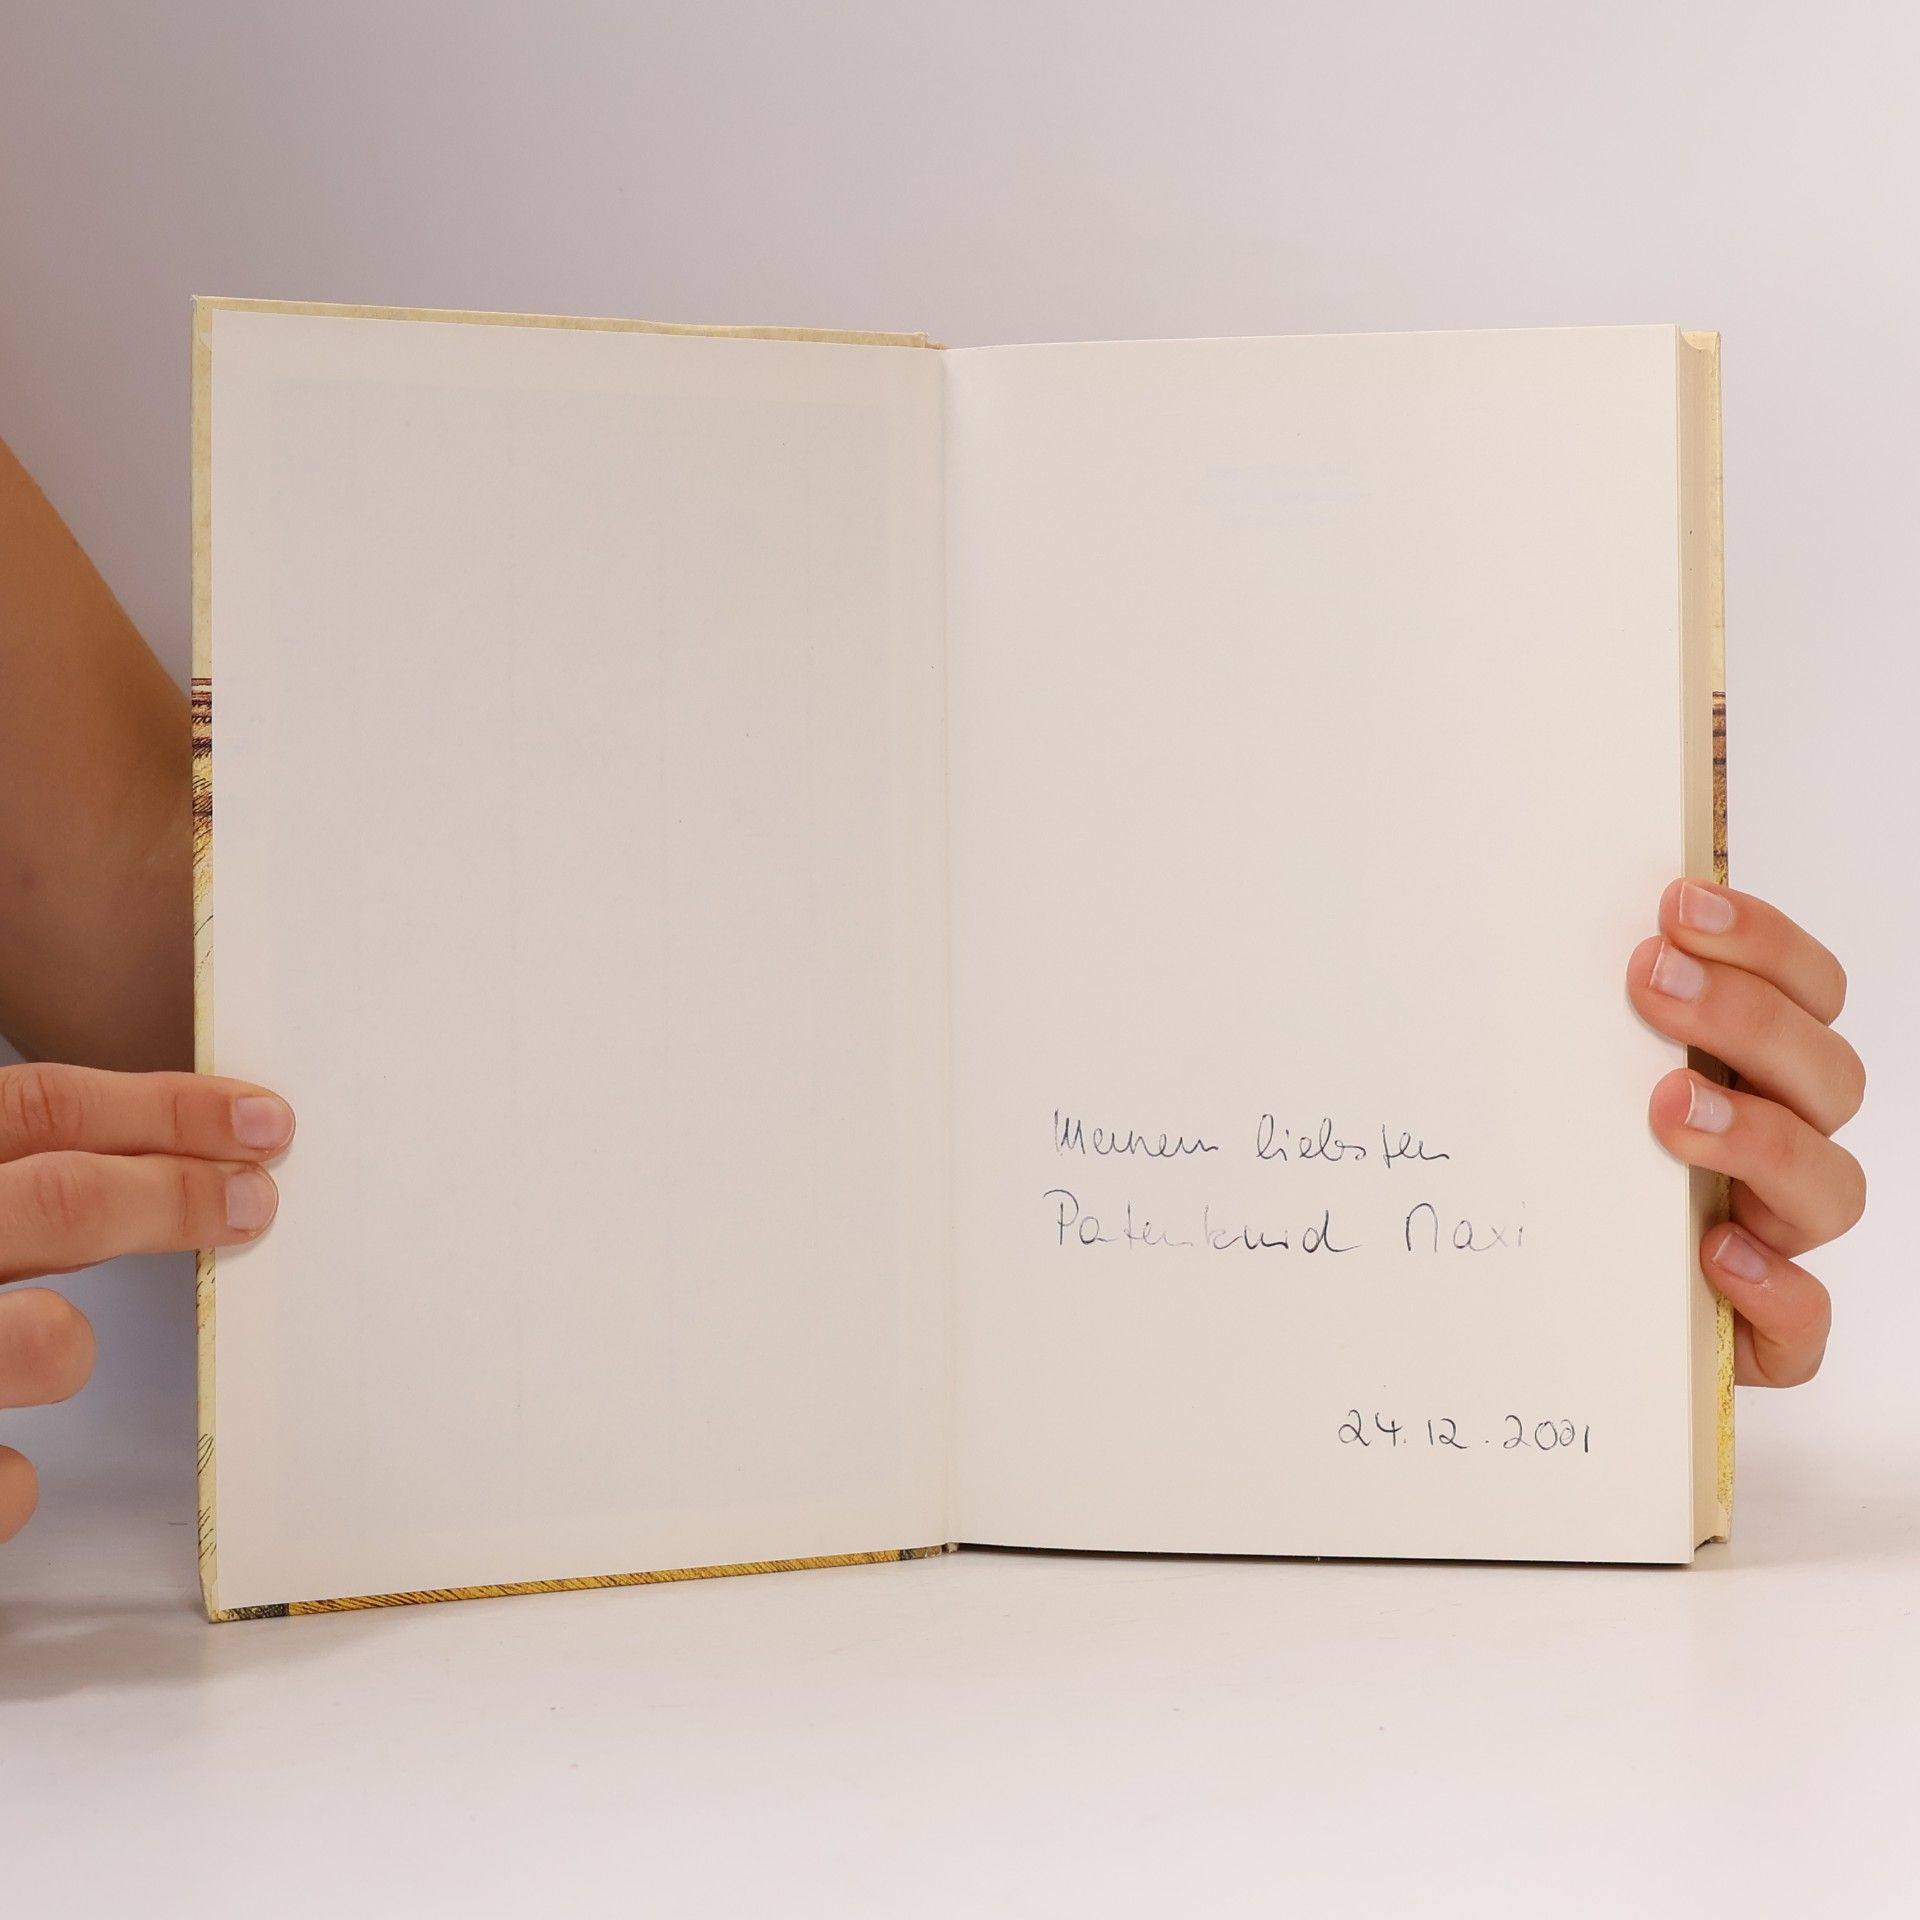 Meinem liebsten
Patenkind Maxi
24.12.2001